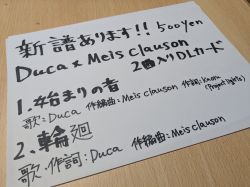 新譜あります!! 500yen
Duca x Meis clauson
2曲入りDLカード
1.始まりの音
歌:Duca 作編曲:Meis clauson 作詞:Kaoru
(Project lights)
2.輪廻
歌・作詞:Duca 作編曲:Meis clauson